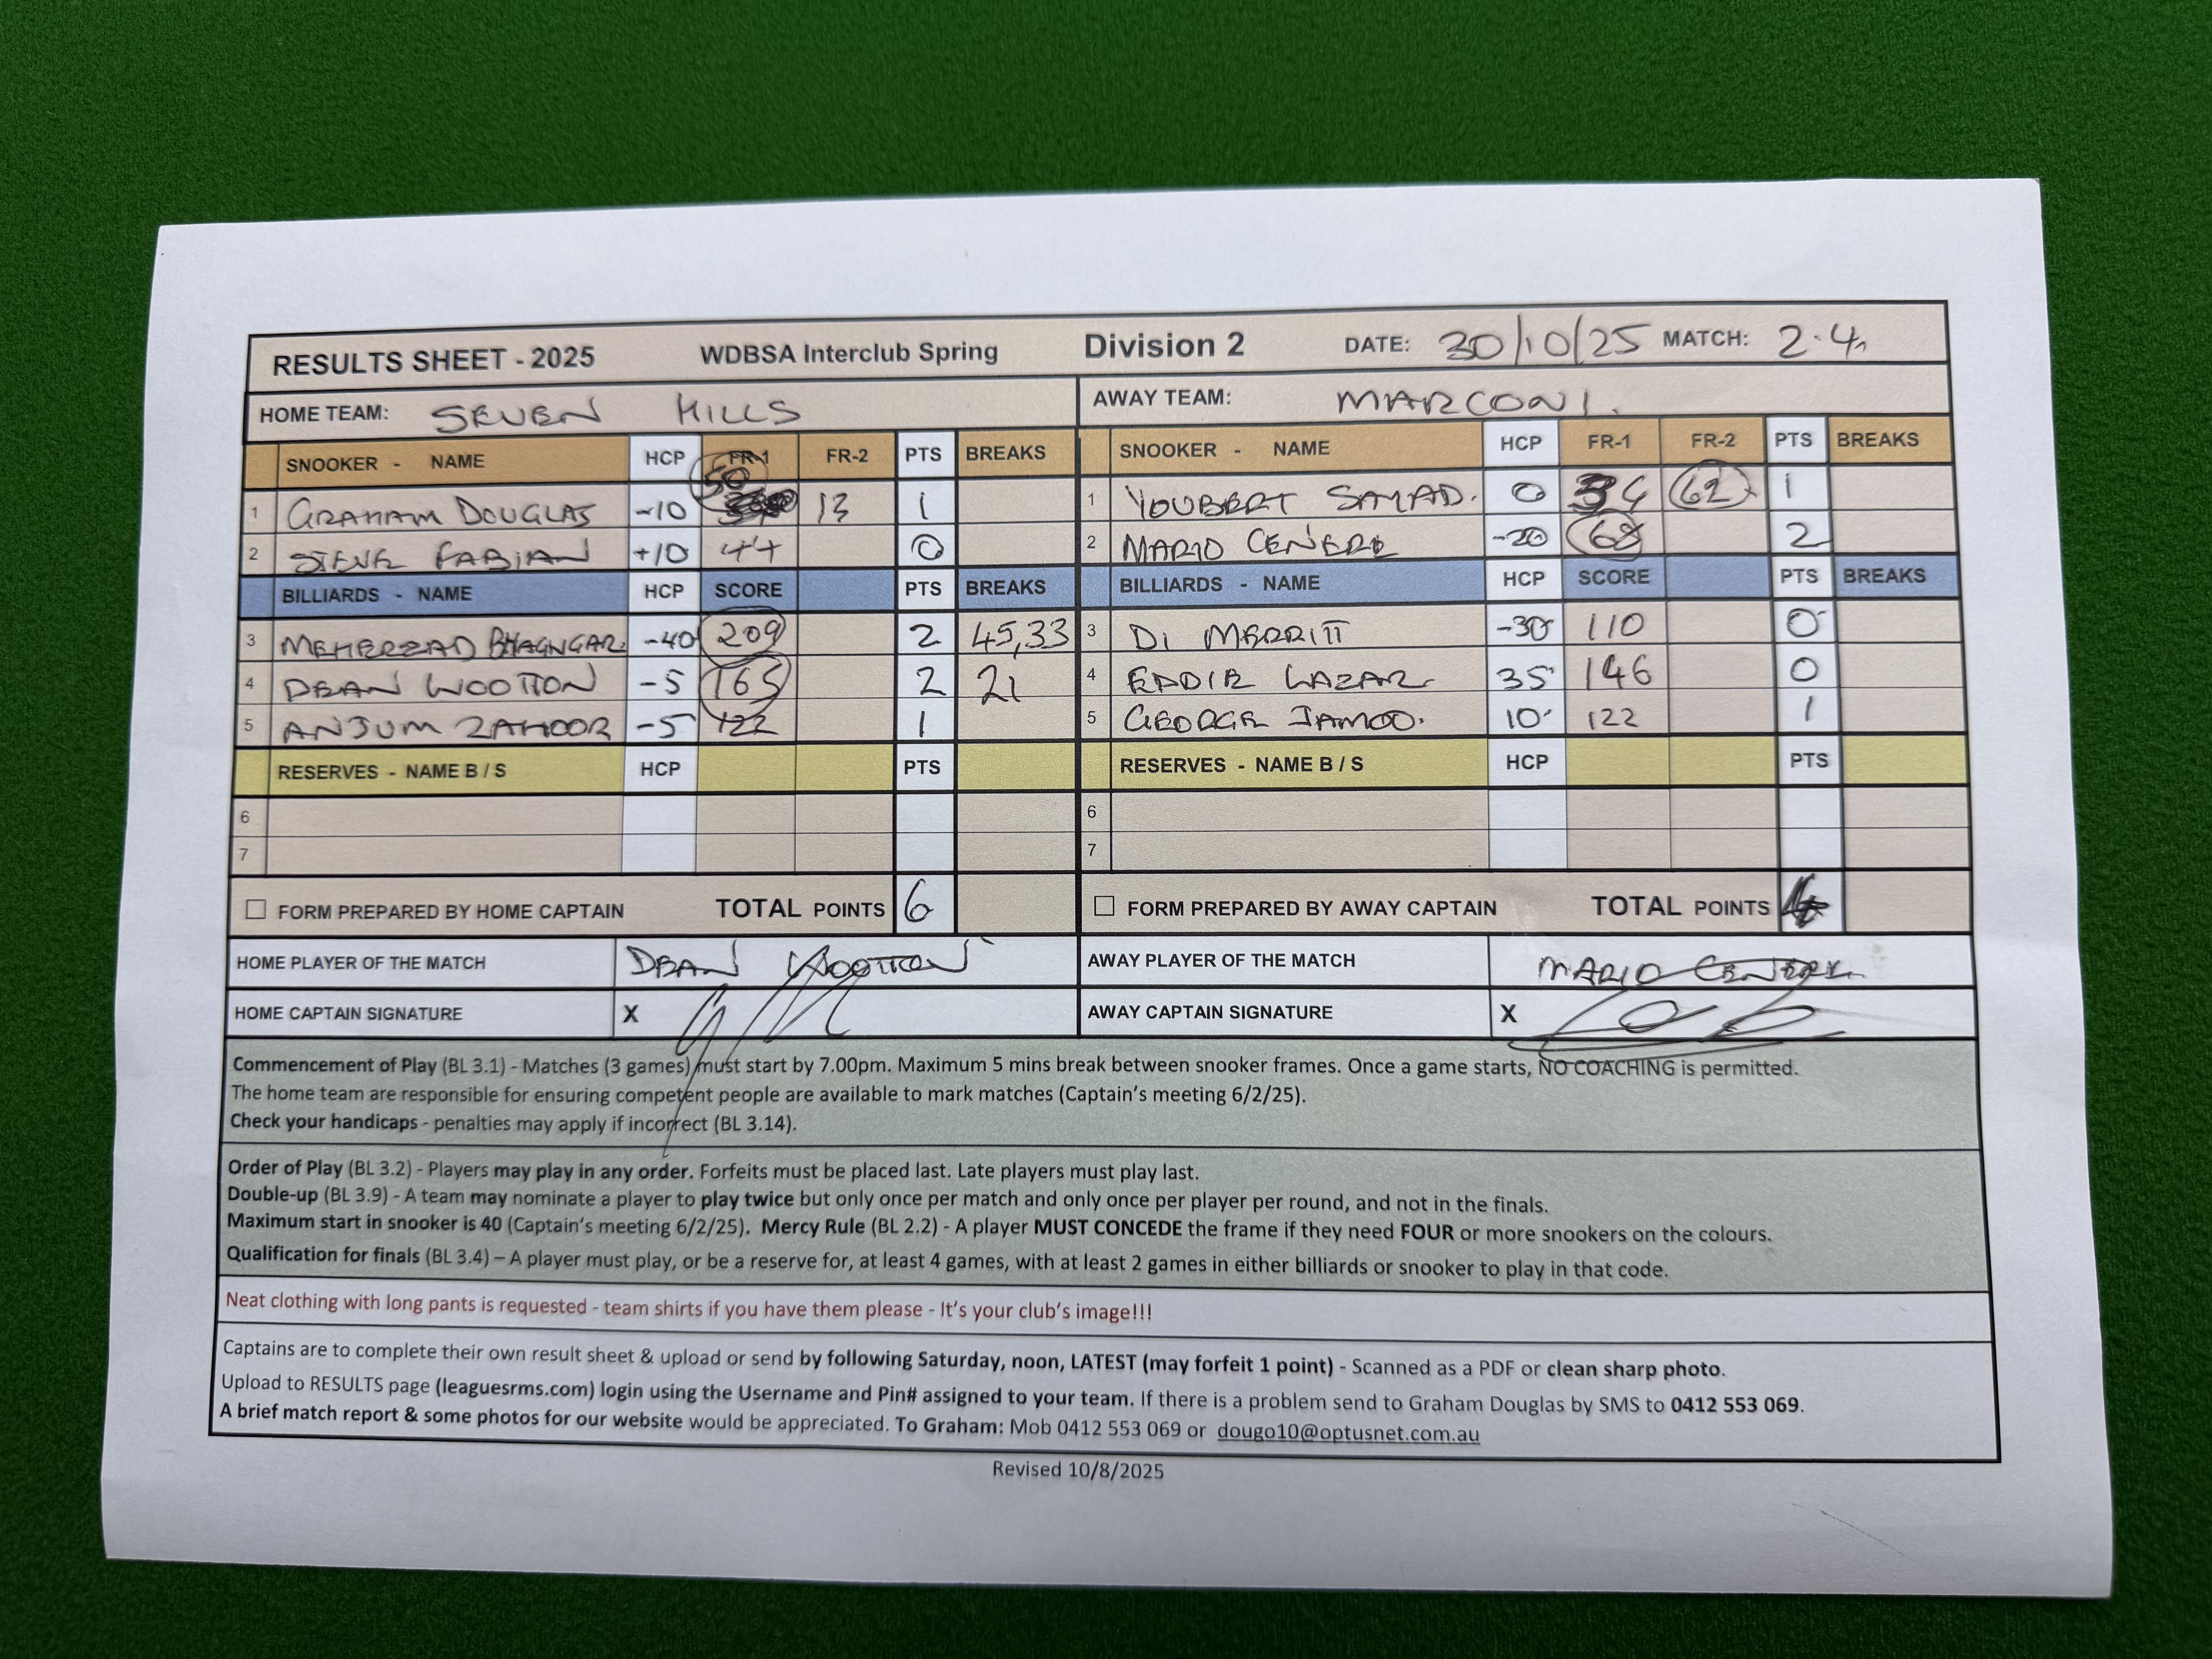 RESULTS SHEET - 2025 WDBSA Interclub Spring Division 2 DATE: 30/10/25 MATCH: 2.4
HOME TEAM: SEVEN HILLS AWAY TEAM: MARCONI.
SNOOKER - NAME HCP FR-1 FR-2 PTS BREAKS SNOOKER - NAME HCP FR-1 FR-2 PTS BREAKS
1 GRAHAM DOUGLAS -10 50 13 1 1 YOUBERT SAYAD. 0 34 62 1
2 STEVE FABIAN +10 44 0 2 MARIO CENERE -20 68 2
BILLIARDS - NAME HCP SCORE PTS BREAKS BILLIARDS - NAME HCP SCORE PTS BREAKS
3 MEHERZAD BHAGNGAR -40 209 2 45,33 3 DI MERRITT -30 110 0
4 DEAN WOOTTON -5 165 2 21 4 EDDIE LAZAR 35 146 0
5 ANJUM ZAHOOR -5 122 1 5 GEORGE JAMOO. 10 122 1
RESERVES - NAME B / S HCP PTS RESERVES - NAME B / S HCP PTS
6 6
7 7
☐ FORM PREPARED BY HOME CAPTAIN TOTAL POINTS 6 ☐ FORM PREPARED BY AWAY CAPTAIN TOTAL POINTS 4
HOME PLAYER OF THE MATCH DEAN WOOTTON AWAY PLAYER OF THE MATCH MARIO CENERE
HOME CAPTAIN SIGNATURE X AWAY CAPTAIN SIGNATURE X
Commencement of Play (BL 3.1) - Matches (3 games) must start by 7.00pm. Maximum 5 mins break between snooker frames. Once a game starts, NO COACHING is permitted.
The home team are responsible for ensuring competent people are available to mark matches (Captain's meeting 6/2/25).
Check your handicaps - penalties may apply if incorrect (BL 3.14).
Order of Play (BL 3.2) - Players may play in any order. Forfeits must be placed last. Late players must play last.
Double-up (BL 3.9) - A team may nominate a player to play twice but only once per match and only once per player per round, and not in the finals.
Maximum start in snooker is 40 (Captain's meeting 6/2/25). Mercy Rule (BL 2.2) - A player MUST CONCEDE the frame if they need FOUR or more snookers on the colours.
Qualification for finals (BL 3.4) – A player must play, or be a reserve for, at least 4 games, with at least 2 games in either billiards or snooker to play in that code.
Neat clothing with long pants is requested - team shirts if you have them please - It's your club's image!!!
Captains are to complete their own result sheet & upload or send by following Saturday, noon, LATEST (may forfeit 1 point) - Scanned as a PDF or clean sharp photo.
Upload to RESULTS page (leaguesrms.com) login using the Username and Pin# assigned to your team. If there is a problem send to Graham Douglas by SMS to 0412 553 069.
A brief match report & some photos for our website would be appreciated. To Graham: Mob 0412 553 069 or dougo10@optusnet.com.au
Revised 10/8/2025